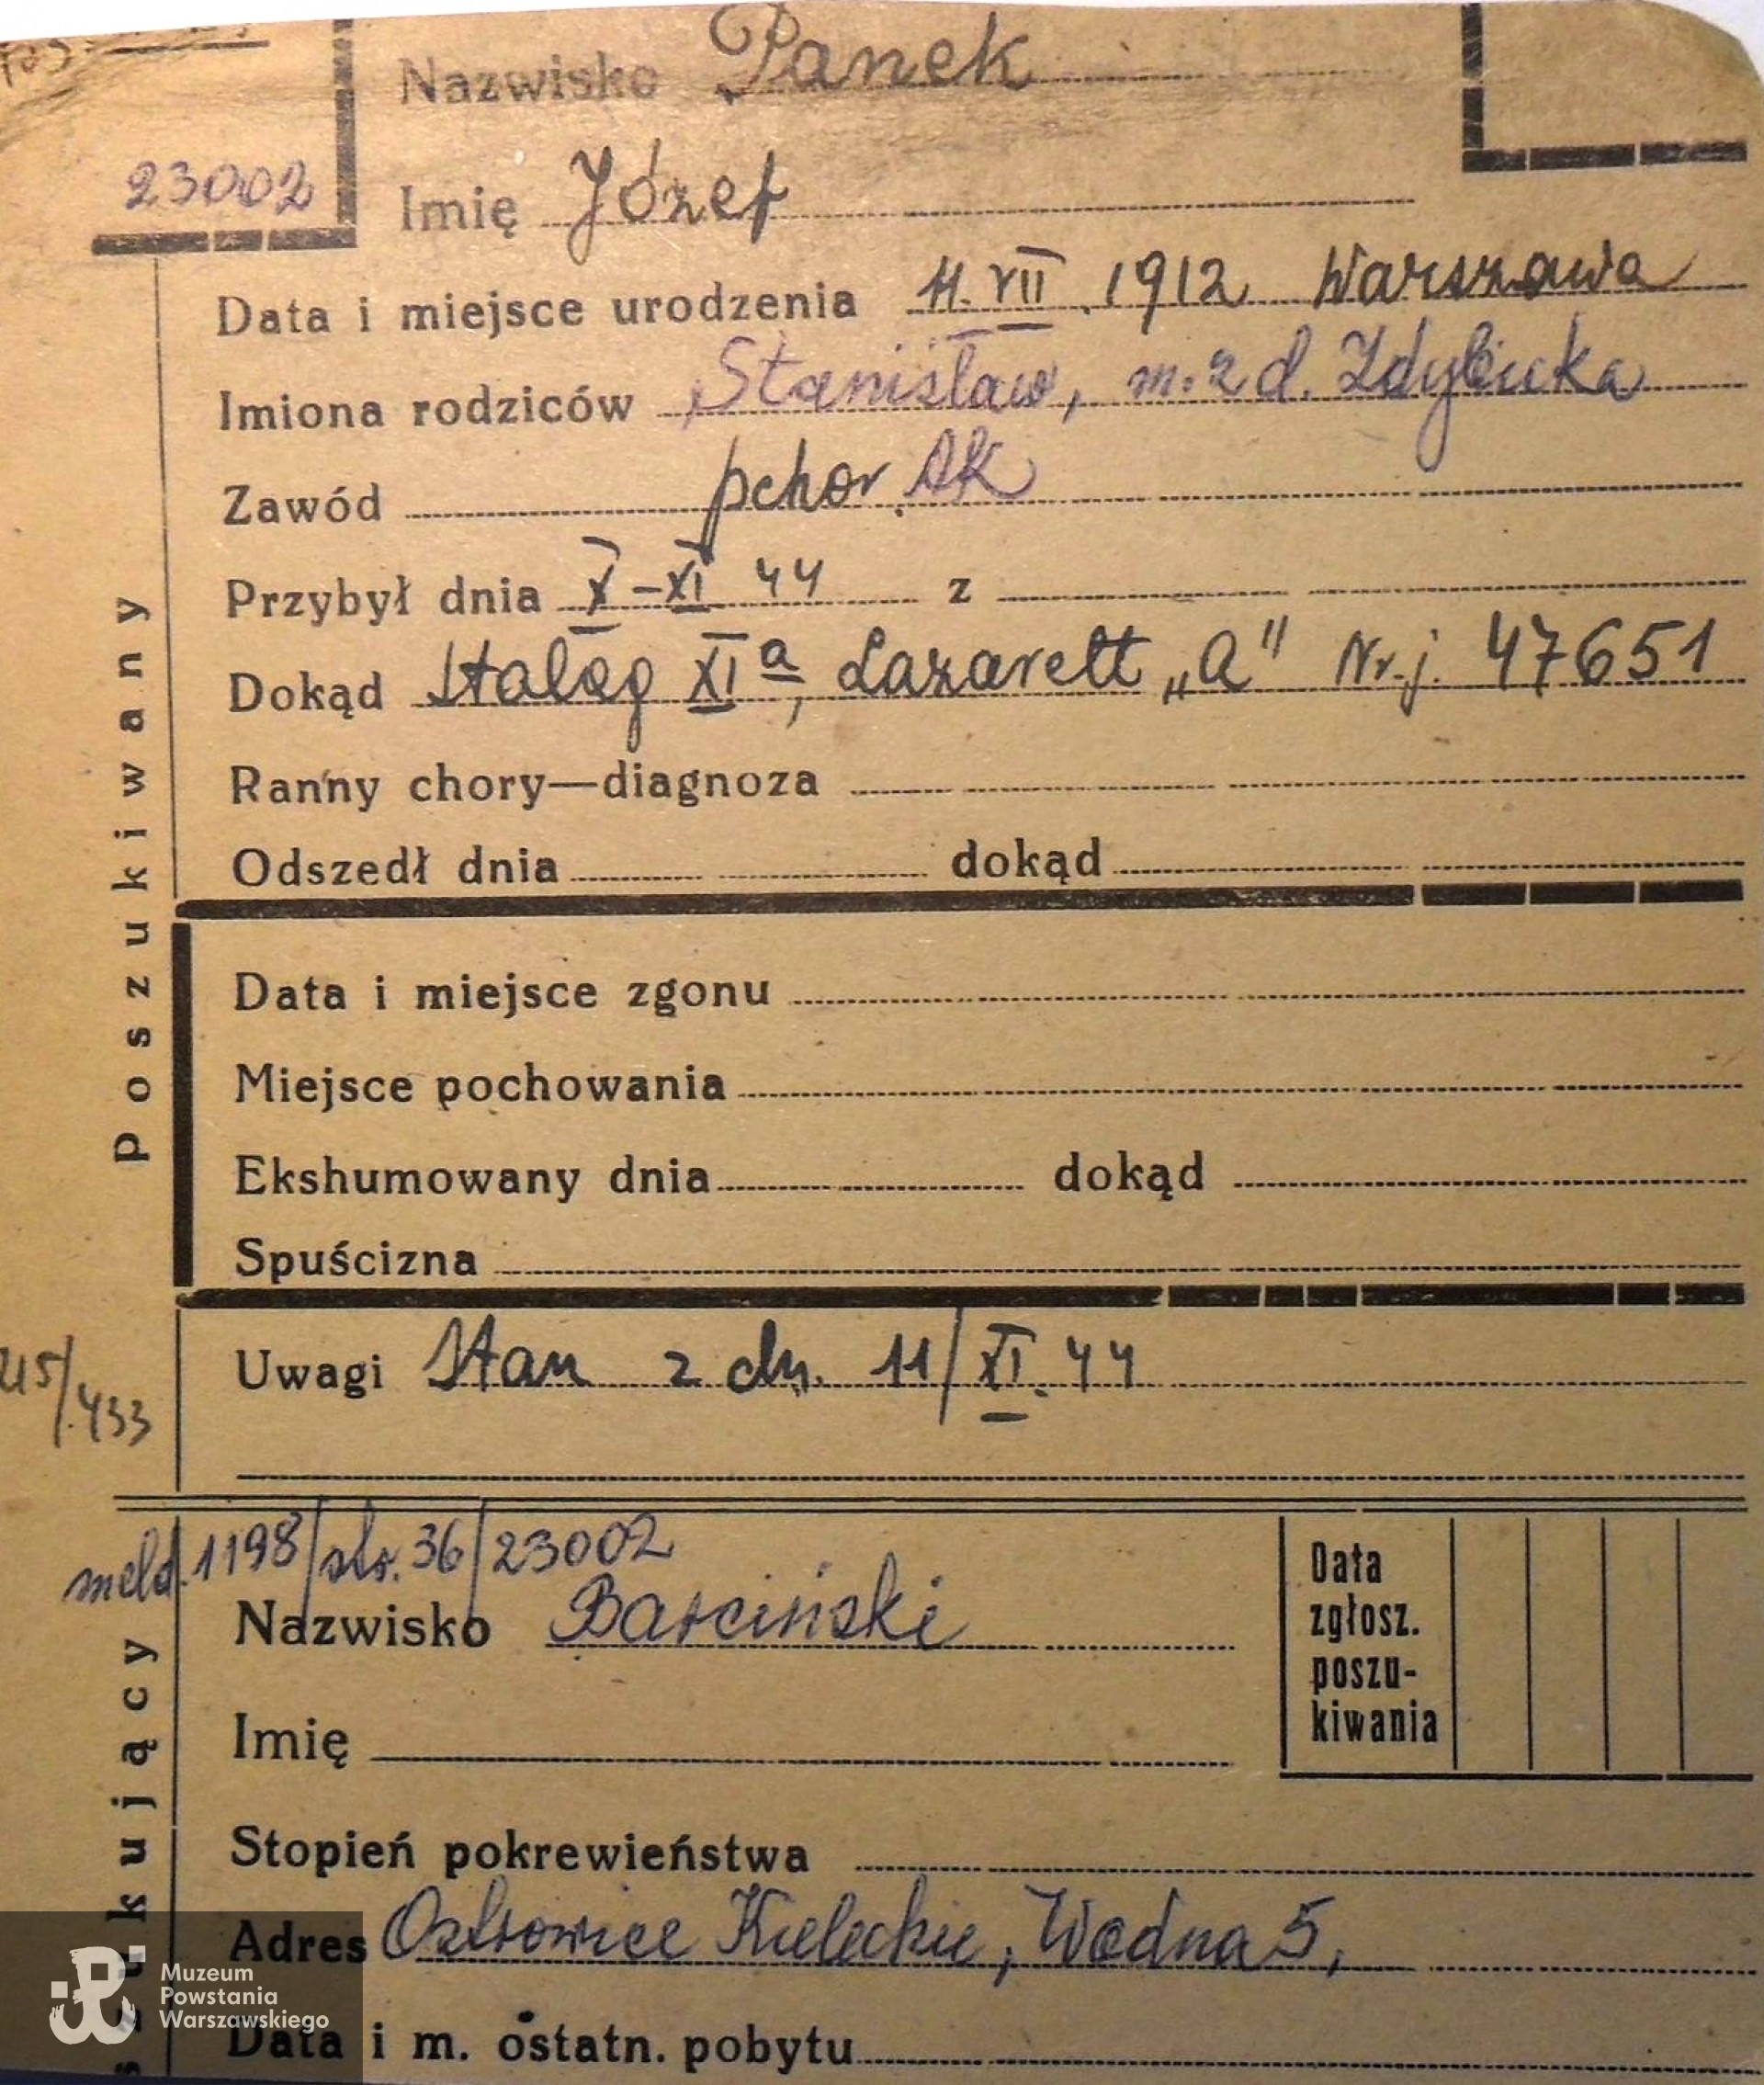 Nazwisko Panek
23002
Imię Józef
Data i miejsce urodzenia 11. VII. 1912 Warszawa
Imiona rodziców Stanisław, m. z d. Zdybicka
Zawód pchor. AK
Przybył dnia X-XI 44 z
Dokąd Stalag XI a, Lazarett „A" Nr. j. 47651
Ranny chory—diagnoza
Odszedł dnia dokąd
Poszukiwany
Data i miejsce zgonu
Miejsce pochowania
Ekshumowany dnia dokąd
Spuścizna
Uwagi Stan z dn. 11/XI. 44
/433
meld. 1198/str. 36/23002
Nazwisko Barciński
Data
zgłosz.
poszu-
kiwania
Imię
Stopień pokrewieństwa
Adres Ostrowiec Kielecki, Wodna 5,
Data i m. ostatn. pobytu
szukujący
Muzeum
Powstania
Warszawskiego